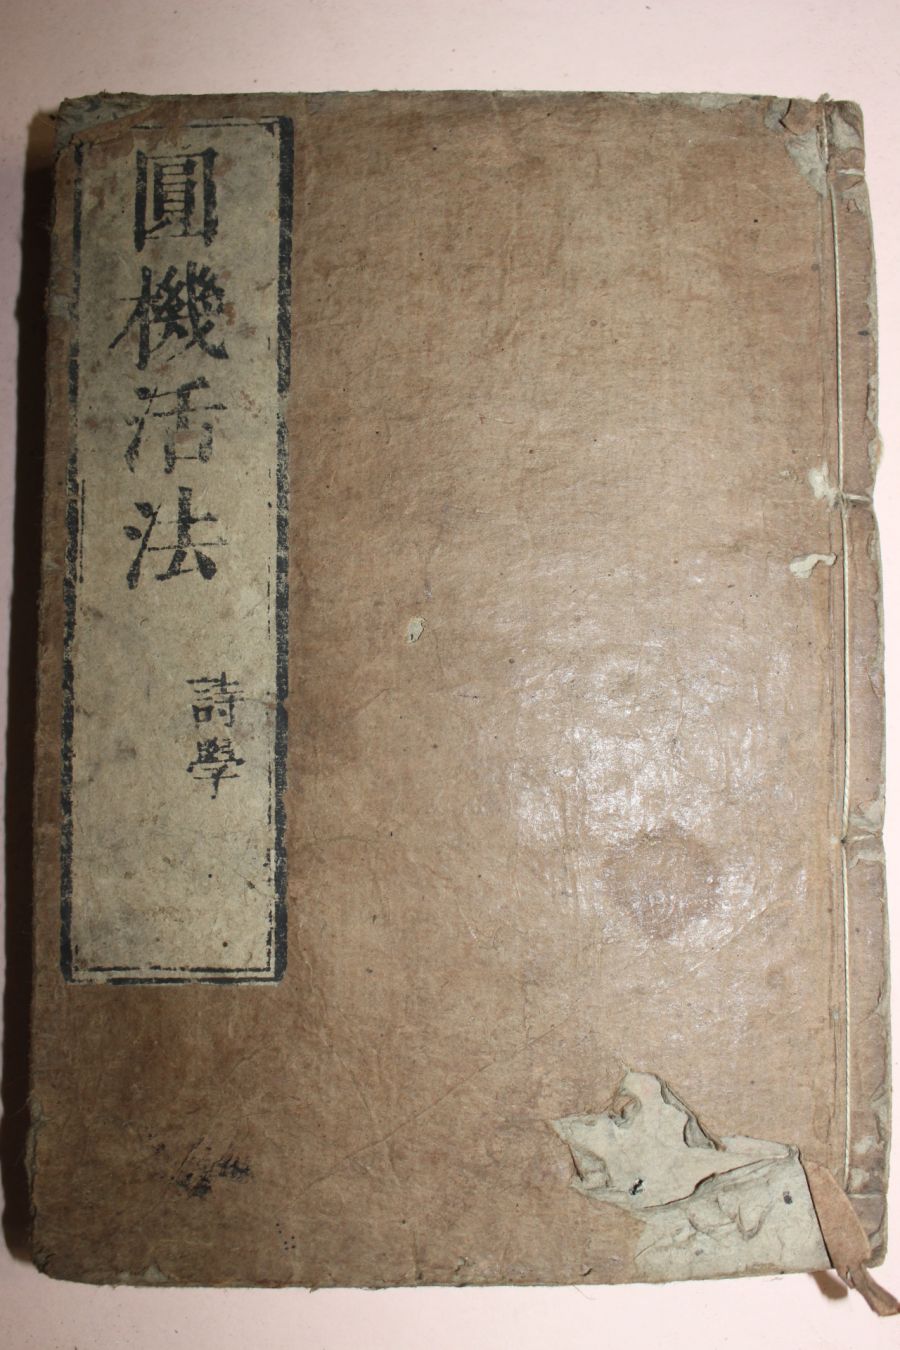 圓機活法
詩學